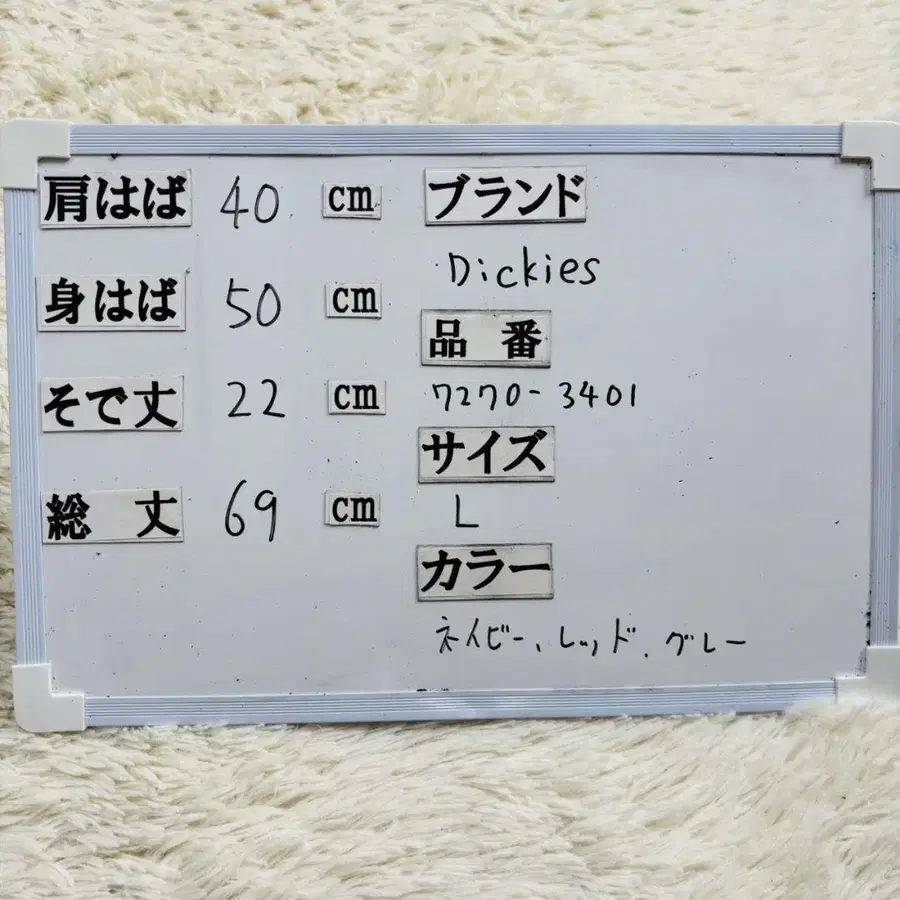 肩はば 40 cm
身はば 50 cm
そで丈 22 cm
総丈 69 cm
ブランド
Dickies
品番
7270-3401
サイズ
L
カラー
ネイビー、レッド、グレー